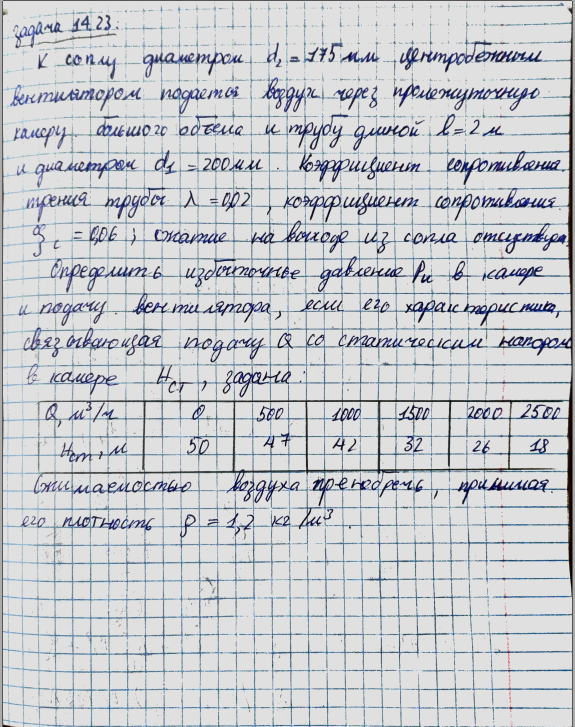 задача 14.23:
К соплу диаметром d₁ = 175 мм центробежным
вентилятором подается воздух через промежуточную
камеру большого объема и трубу длиной l = 2 м
и диаметром d₁ = 200 мм. Коэффициент сопротивления
трения трубы λ = 0,02, коэффициент сопротивления
ξс = 0,06; сжатие на выходе из сопла отсутствует.
Определить избыточное давление Pи в камере
и подачу вентилятора, если его характеристика,
связывающая подачу Q со статическим напором
в камере Hст, задана:
Q, м³/ч 0 500 1000 1500 2000 2500
Hст, м 50 47 42 32 26 18
Сжимаемостью воздуха пренебречь, принимая
его плотность ρ = 1,2 кг/м³.